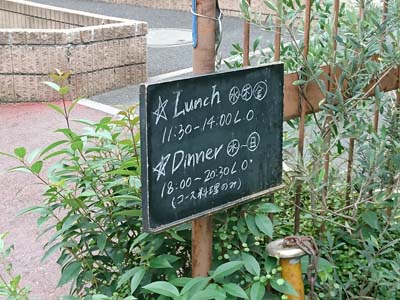 ☆Lunch ㊌㊍㊎
11:30~14:00 L.O
☆Dinner ㊌~㊐
18:00~20:30 L.O
(コース料理のみ)